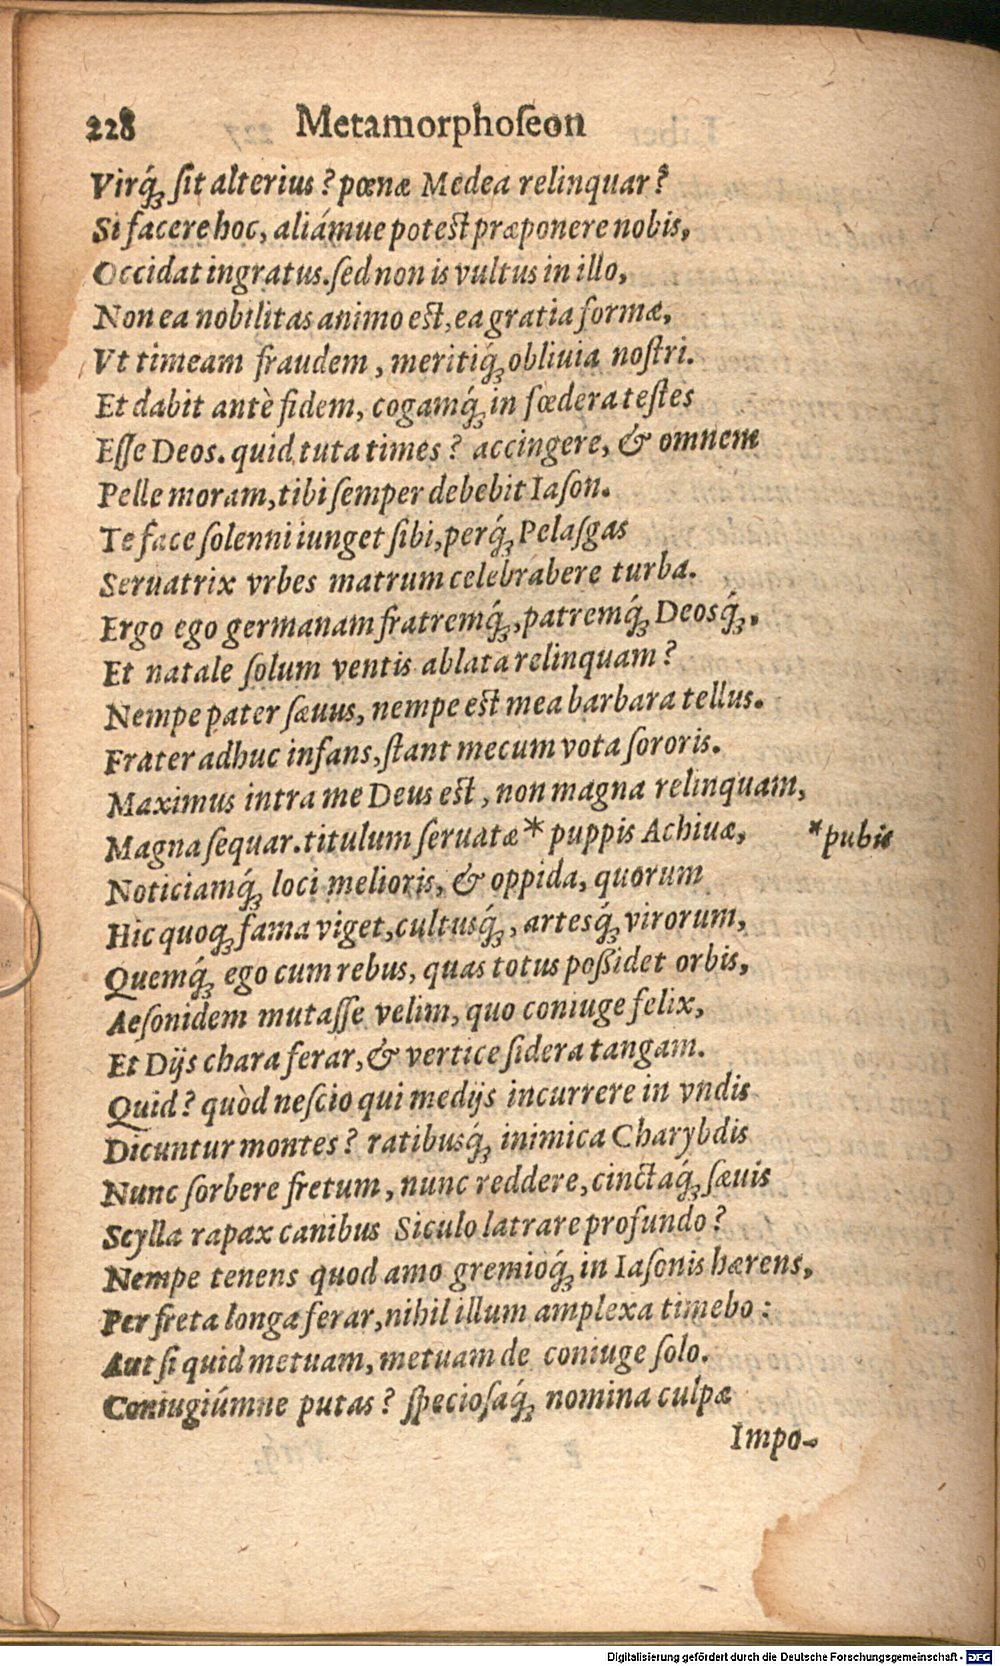 228 Metamorphoſeon
Virq́; ſit alterius? pœnæ Medea relinquar?
Si facere hoc, aliámue poteſt præponere nobis,
Occidat ingratus. ſed non is vultus in illo,
Non ea nobilitas animo eſt, ea gratia formæ,
Vt timeam fraudem, meritiq́; obliuia noſtri.
Et dabit antè fidem, cogamq́; in fœdera teſtes
Eſſe Deos. quid tuta times? accingere, & omnem
Pelle moram, tibi ſemper debebit Iaſon.
Te face ſolenni iunget ſibi, perq́; Pelaſgas
Seruatrix vrbes matrum celebrabere turba.
Ergo ego germanam fratremq́;, patremq́; Deosq́;,
Et natale ſolum ventis ablata relinquam?
Nempe pater ſæuus, nempe eſt mea barbara tellus.
Frater adhuc infans, ſtant mecum vota ſororis.
Maximus intra me Deus eſt, non magna relinquam,
Magna ſequar. titulum ſeruatæ* puppis Achiuæ, *pubis
Noticiamq́; loci melioris, & oppida, quorum
Hic quoq; fama viget, cultusq́;, artesq́; virorum,
Quemq́; ego cum rebus, quas totus poßidet orbis,
Aeſonidem mutaſſe velim, quo coniuge felix,
Et Dijs chara ferar, & vertice ſidera tangam.
Quid? quòd neſcio qui medijs incurrere in vndis
Dicuntur montes? ratibusq́; inimica Charybdis
Nunc ſorbere fretum, nunc reddere, cinctaq́; ſæuis
Scylla rapax canibus Siculo latrare profundo?
Nempe tenens quod amo gremioq́; in Iaſonis hærens,
Per freta longa ferar, nihil illum amplexa timebo:
Aut ſi quid metuam, metuam de coniuge ſolo.
Coniugiúmne putas? ſpecioſaq́; nomina culpæ
Impo-
Digitalisierung gefördert durch die Deutsche Forschungsgemeinschaft - DFG